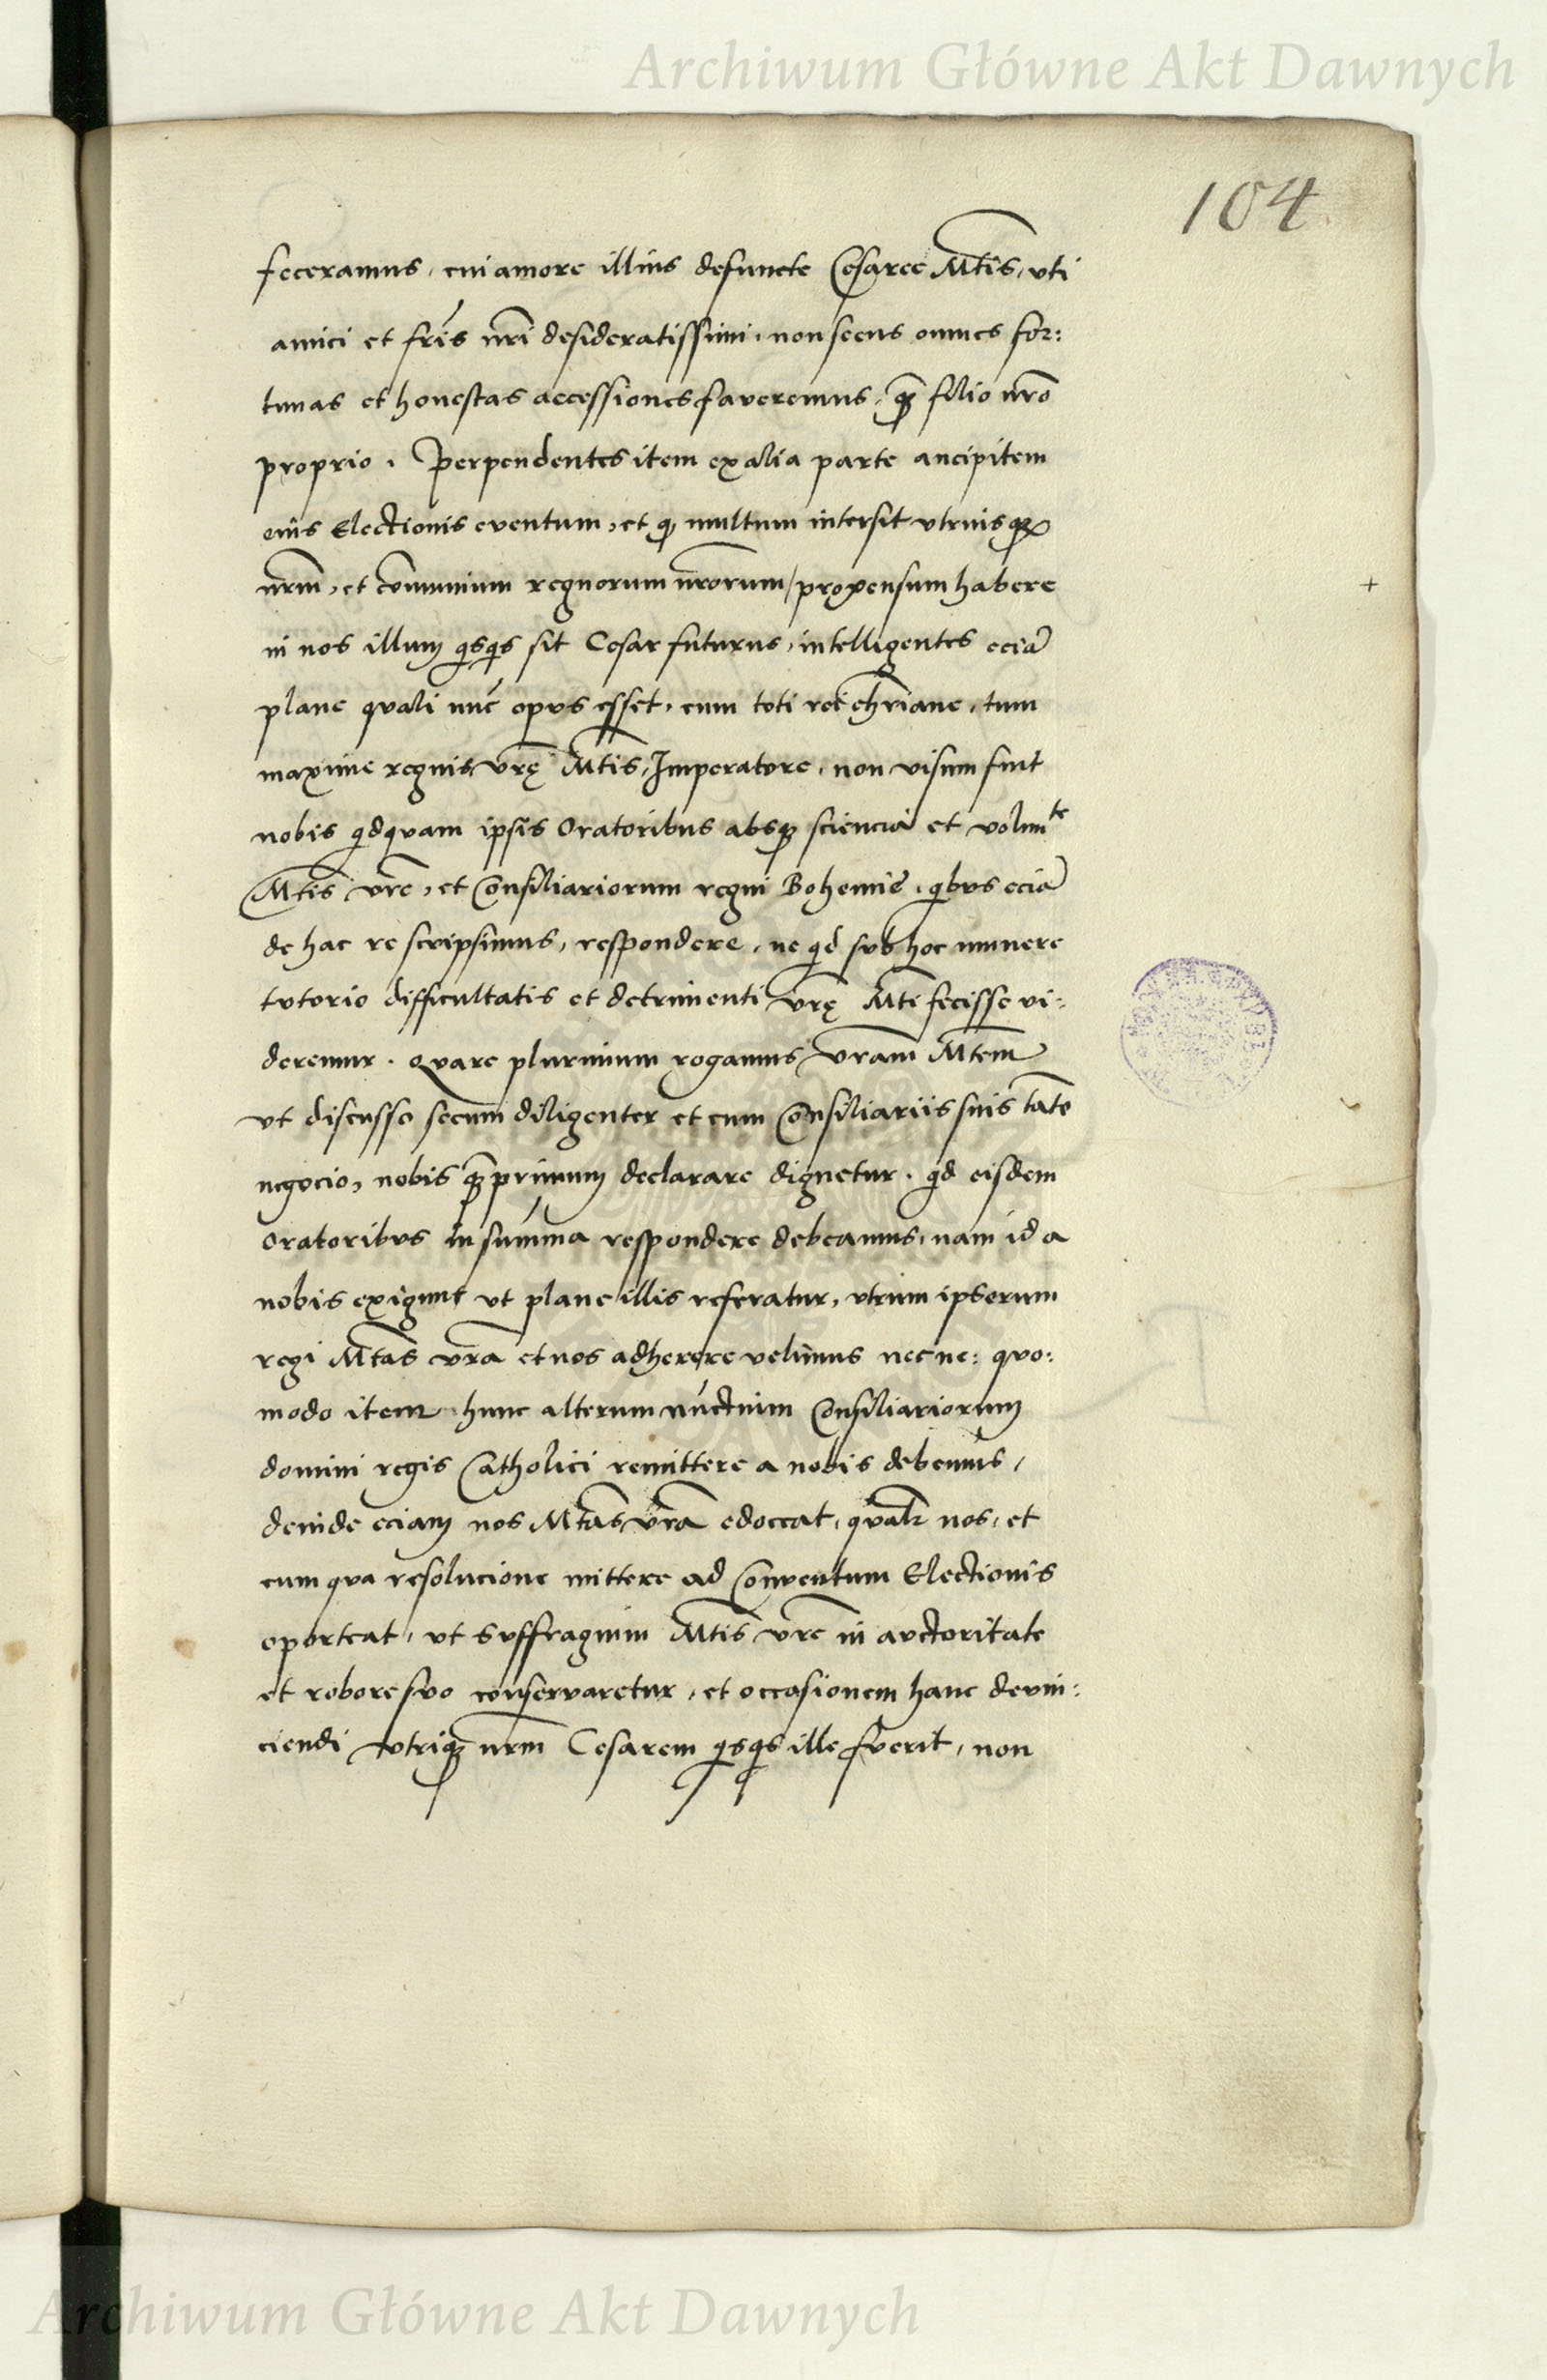 Archiwum Główne Akt Dawnych
104
feceramus, cui amore illius defuncte Cesaree Mtis, vti
amici et fris nri desideratissimi, non secus omnes for:
tunas et honestas accessiones faveremus, q̃ filio nro
proprio. Perpendentes item ex alia parte ancipitem
eius Electionis eventum, et q multum intersit vtriusq
nrm, et cōmunium regnorum nrorum, propensum habere
in nos illum qsqs sit Cesar futurus, intelligentes eciā
plane quali nūc opus esset, cum toti rei chriane, tum
maxime regnis vrę Mtis, Imperatore, non visum fuit
nobis qdquam ipsis Oratoribus absq sciencia et volunte
Mtis vre, et Consiliariorum regni Bohemie, qbus eciā
de hac re scripsimus, respondere, ne qd sub hoc munere
tutorio difficultatis et detrimenti vrę Mti fecisse vi:
deremur. Quare plurimum rogamus vram Mtem
vt discusso secum diligenter et cum Consiliariis suis tāto
negocio, nobis q̃primum declarare dignetur. qd eisdem
oratoribus in summa respondere debeamus, nam id a
nobis exigunt vt plane illis referatur, vtrum ipsorum
regi Mtas vra et nos adherere velimus necne: quo:
modo item hunc alterum nūctium Consiliariorum
domini regis Catholici remittere a nobis debemus,
deinde eciam nos Mtas vra edoceat, qualr nos, et
cum qua resolucione mittere ad Conventum Electionis
oporteat, vt Suffragium Mtis vre in auctoritate
et robore suo conservaretur, et occasionem hanc devin:
ciendi vtriq nrm Cesarem qsqs ille fuerit, non
Archiwum Główne Akt Dawnych